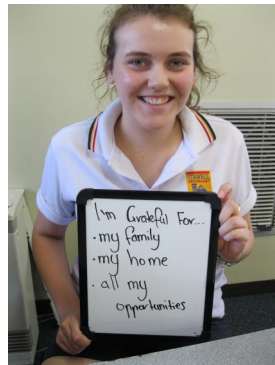 I'm Grateful For...
• my family
• my home
• all my
opportunities